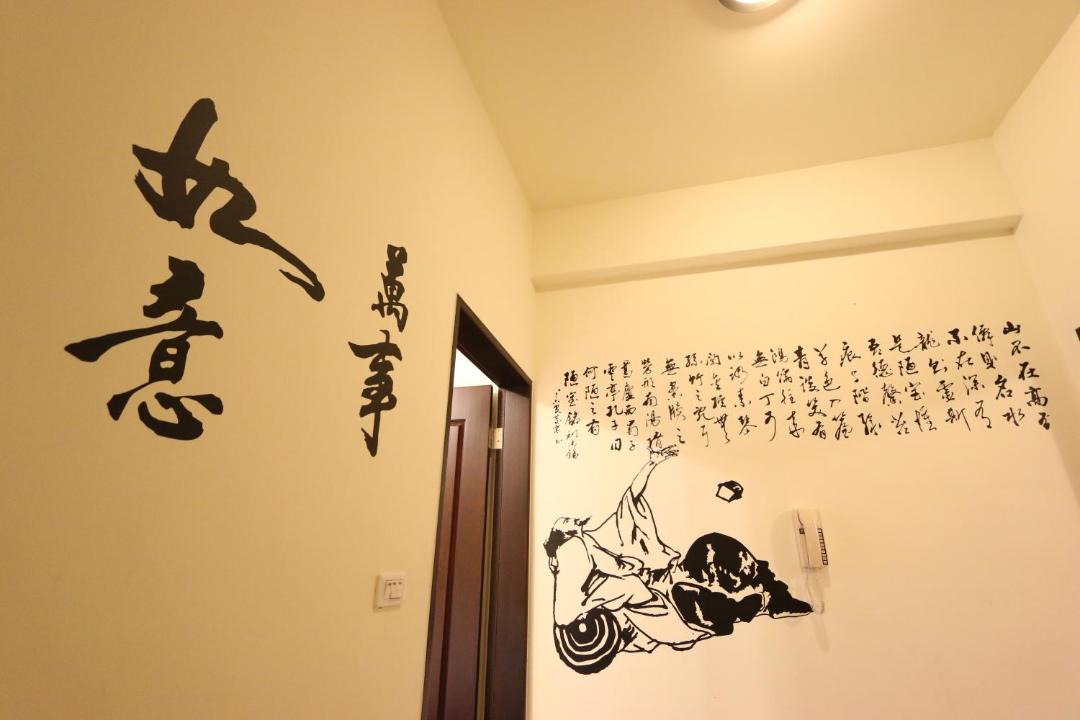 萬事
如意
山不在高有
僊則名水
不在深有
龍則靈斯
是陋室惟
吾德馨苔
痕上階綠
草色入簾
青談笑有
鴻儒往來
無白丁可
以調素琴
閱金經無
絲竹之亂耳
無案牘之
勞形南陽諸
葛廬西蜀子
雲亭孔子曰
何陋之有
陋室銘劉禹錫